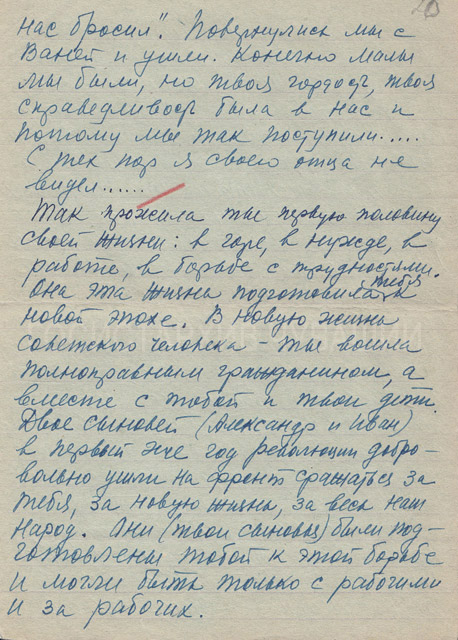 нас бросил". Повернулись мы с
Ваней и ушли. Конечно малы
мы были, но твоя гордость, твоя
справедливость была в нас и
потому мы так поступили.....
С тех пор я своего отца не
видел......
Так прожила ты первую половину
своей жизни: в горе, в нужде, в
работе, в борьбе с трудностями.
Она эта жизнь подготовила тебя к
новой эпохе. В новую жизнь
советского человека - ты вошла
полноправным гражданином, а
вместе с тобой и твои дети.
Двое сыновей (Александр и Иван)
в первый же год революции добро-
вольно ушли на фронт сражаться за
тебя, за новую жизнь, за весь наш
народ. Они (твои сыновья) были под-
готовлены тобой к этой борьбе
и могли быть только с рабочими
и за рабочих.